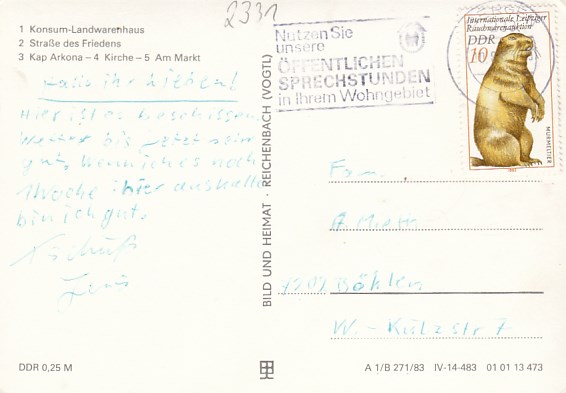 2331
1 Konsum-Landwarenhaus
2 Straße des Friedens
3 Kap Arkona – 4 Kirche – 5 Am Markt
Hallo ihr lieben!
Hier ist es beschissen
Wetter bis jetzt sehr
gut. Wenn ich es noch
1 Woche hier aushalte
bin ich gut.
Tschüß
Jens
DDR 0,25 M
BILD UND HEIMAT · REICHENBACH (VOGTL)
Nutzen Sie
unsere
ÖFFENTLICHEN
SPRECHSTUNDEN
in Ihrem Wohngebiet
Internationale Leipziger
Rauchwarenauktion
DDR
10
MURMELTIER
1982
Fam.
A.
Böhlen
W.-Külzstr 7
A 1/B 271/83 IV-14-483 01 01 13 473